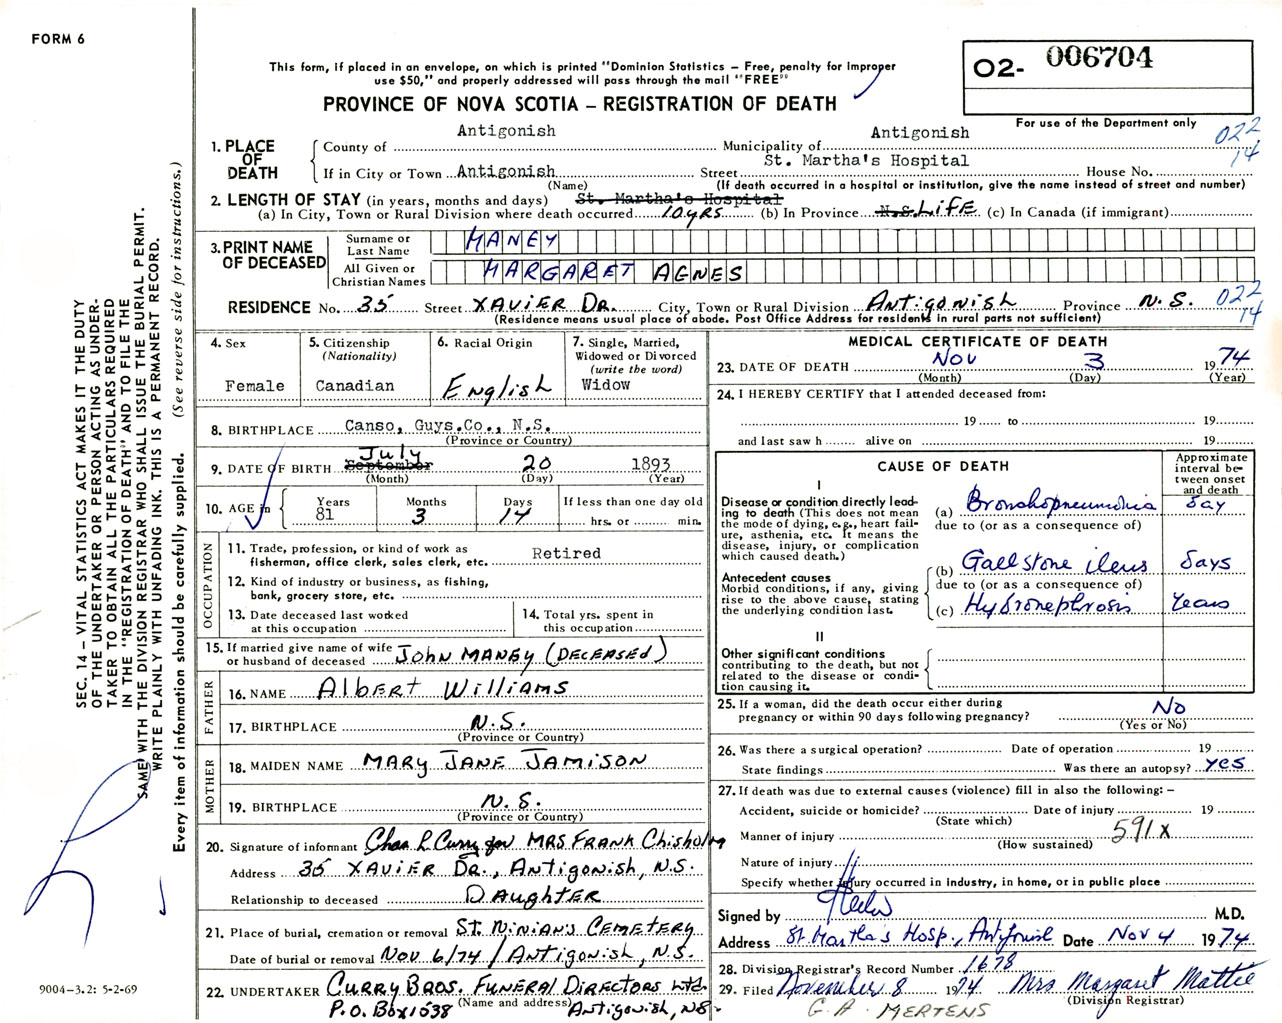 FORM 6
This form, if placed in an envelope, on which is printed "Dominion Statistics – Free, penalty for improper
use $50," and properly addressed will pass through the mail "FREE"
PROVINCE OF NOVA SCOTIA – REGISTRATION OF DEATH
O2- 006704
For use of the Department only
022
14
1. PLACE OF DEATH
County of Antigonish Municipality of Antigonish
If in City or Town Antigonish Street St. Martha's Hospital House No.
(Name) (If death occurred in a hospital or institution, give the name instead of street and number)
2. LENGTH OF STAY (in years, months and days) St. Martha's Hospital
(a) In City, Town or Rural Division where death occurred 10 yrs (b) In Province N.S. LIFE (c) In Canada (if immigrant)
3. PRINT NAME OF DECEASED
Surname or Last Name MANEY
All Given or Christian Names MARGARET AGNES
RESIDENCE No. 35 Street XAVIER DR. City, Town or Rural Division ANTIGONISH Province N.S. 022
14
(Residence means usual place of abode. Post Office Address for residents in rural parts not sufficient)
4. Sex
Female
5. Citizenship
(Nationality)
Canadian
6. Racial Origin
English
7. Single, Married,
Widowed or Divorced
(write the word)
Widow
8. BIRTHPLACE Canso, Guys.Co., N.S.
(Province or Country)
July
9. DATE OF BIRTH September 20 1893
(Month) (Day) (Year)
10. AGE in
Years Months Days If less than one day old
81 3 14 hrs. or min.
OCCUPATION
11. Trade, profession, or kind of work as
fisherman, office clerk, sales clerk, etc. Retired
12. Kind of industry or business, as fishing,
bank, grocery store, etc.
13. Date deceased last worked
at this occupation
14. Total yrs. spent in
this occupation
15. If married give name of wife
or husband of deceased JOHN MANEY (DECEASED)
FATHER
16. NAME Albert Williams
17. BIRTHPLACE N.S.
(Province or Country)
MOTHER
18. MAIDEN NAME MARY JANE JAMISON
19. BIRTHPLACE N.S.
(Province or Country)
20. Signature of informant Chas L Curry for MRS FRANK Chisholm
Address 35 XAVIER DR., Antigonish, N.S.
Relationship to deceased DAughter
21. Place of burial, cremation or removal ST. NINIAN'S CEMETERY
Date of burial or removal Nov 6/74 / Antigonish, N.S.
22. UNDERTAKER CURRY BROS. FUNERAL DIRECTORS Ltd.
P.O. Box 1538 (Name and address) Antigonish, NS.
MEDICAL CERTIFICATE OF DEATH
23. DATE OF DEATH Nov 3 1974
(Month) (Day) (Year)
24. I HEREBY CERTIFY that I attended deceased from:
19 to 19
and last saw h alive on 19
CAUSE OF DEATH
Approximate
interval be-
tween onset
and death
I
Disease or condition directly lead-
ing to death (This does not mean
the mode of dying, e.g., heart fail-
ure, asthenia, etc. It means the
disease, injury, or complication
which caused death.)
(a) Bronchopneumonia day
due to (or as a consequence of)
Antecedent causes
Morbid conditions, if any, giving
rise to the above cause, stating
the underlying condition last.
(b) Gallstone ileus days
due to (or as a consequence of)
(c) Hydronephrosis Years
II
Other significant conditions
contributing to the death, but not
related to the disease or condi-
tion causing it.
25. If a woman, did the death occur either during
pregnancy or within 90 days following pregnancy? No
(Yes or No)
26. Was there a surgical operation? Date of operation 19
State findings Was there an autopsy? yes
27. If death was due to external causes (violence) fill in also the following: –
Accident, suicide or homicide? Date of injury 19
(State which)
591x
Manner of injury
(How sustained)
Nature of injury
Specify whether injury occurred in industry, in home, or in public place
Signed by M.D.
Address St. Martha's Hosp., Antigonish Date Nov 4 1974
28. Division Registrar's Record Number 1678
29. Filed November 8 1974 Mrs Margaret Mattie
(Division Registrar)
G.A. MERTENS
SEC. 14 – VITAL STATISTICS ACT MAKES IT THE DUTY
OF THE UNDERTAKER OR PERSON ACTING AS UNDER-
TAKER TO OBTAIN ALL THE PARTICULARS REQUIRED
IN THE "REGISTRATION OF DEATH" AND TO FILE THE
SAME WITH THE DIVISION REGISTRAR WHO SHALL ISSUE THE BURIAL PERMIT.
WRITE PLAINLY WITH UNFADING INK. THIS IS A PERMANENT RECORD.
Every item of information should be carefully supplied. (See reverse side for instructions.)
9004-3.2: 5-2-69